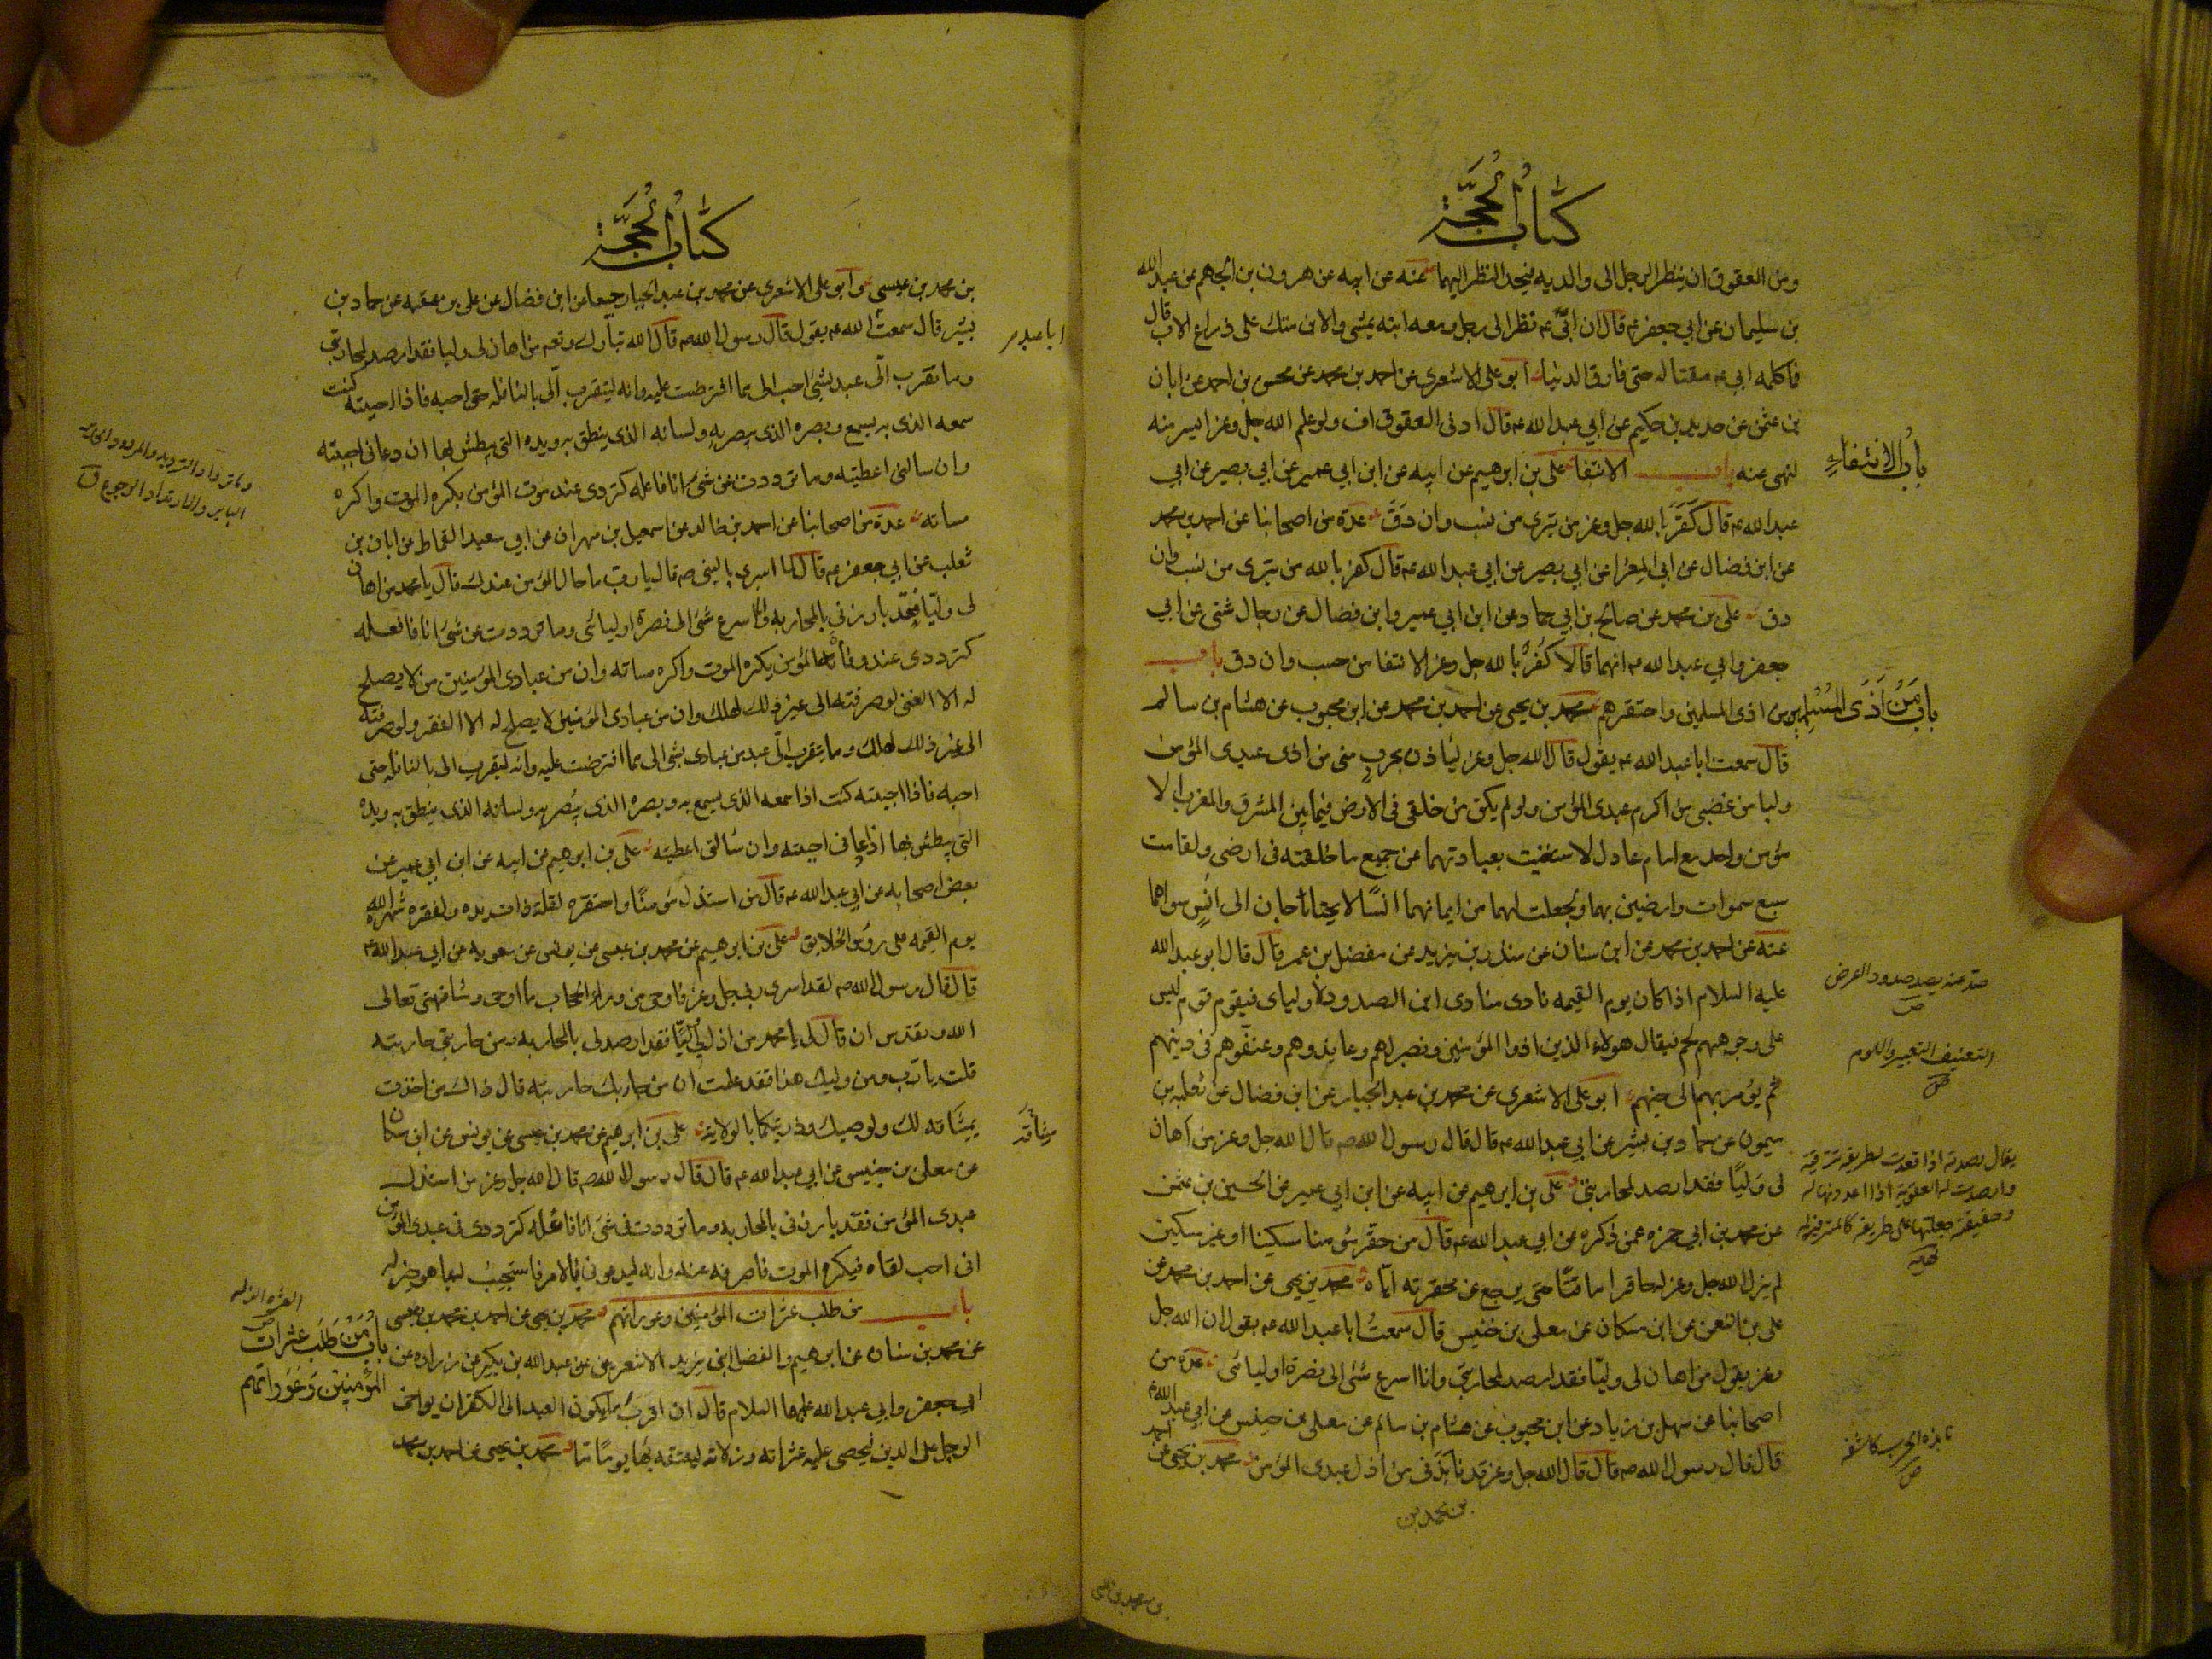 كتاب الحجة
ومن العقوق ان ينظر الرجل الى والديه فيحد النظر اليهما عنه عن ابيه عن هرون بن الجهم عن عبد الله
بن سليمان عن ابي جعفر ع قال ان ابي ع نظر الى رجل ومعه ابنه يمشي والابن متك على ذراع الاب قال
فما كلمه ابي ع مقتا له حتى فارق الدنيا ابو على الاشعرى عن احمد بن محمد عن محسن بن احمد عن ابان
بن عثمن عن حديد بن حكيم عن ابي عبد الله ع قال ادنى العقوق اف ولو علم الله جل وعز ايسر منه
لنهى عنه باب الانتفا على بن ابرهيم عن ابيه عن ابن ابي عمير عن ابي بصير عن ابي
عبد الله ع قال كفر بالله جل وعز من تبرى من نسب وان دق عدة من اصحابنا عن احمد بن محمد
عن ابن فضال عن ابي المغرا عن ابي بصير عن ابي عبد الله ع قال كفر بالله من تبرى من نسب وان
دق على بن محمد عن صالح بن ابي حماد عن ابن ابي عمير وابن فضال عن رجال شتى عن ابي
جعفر وابي عبد الله ع انهما قالا كفر بالله جل وعز الانتفا من حسب وان دق باب
من اذى المسلمين واحتقرهم محمد بن يحيى عن احمد بن محمد عن ابن محبوب عن هشام بن سالم
قال سمعت ابا عبد الله ع يقول قال الله جل وعز لياذن بحرب منى من اذى عبدى المؤمن
وليا من غضبى من اكرم عبدى المؤمن ولو لم يكن من خلقى فى الارض فيما بين المشرق والمغرب الا
مؤمن واحد مع امام عادل لاستغنيت بعبادتهما عن جميع ما خلقته فى ارضى ولقامت
سبع سموات وارضين بهما ولجعلت لهما من ايمانهما انسا لا يحتاجان الى انس سواهما
عنه عن احمد بن محمد عن ابن سنان عن منذر بن يزيد عن مفضل بن عمر قال قال ابو عبد الله
عليه السلام اذا كان يوم القيمه نادى منادى اين الصدود لاولياى فيقوم قوم ليس
على وجوههم لحم فيقال هولاء الذين اذوا المؤمنين ونصبوا لهم وعاندوهم وعنفوهم فى دينهم
ثم يؤمر بهم الى جهنم ابو على الاشعرى عن محمد بن عبد الجبار عن ابن فضال عن ثعلبه بن
ميمون عن حماد بن بشير عن ابي عبد الله ع قال قال رسول الله ص قال الله جل وعز من اهان
لى وليا فقد ارصد لمحاربتى على بن ابرهيم عن ابيه عن ابن ابي عمير عن الحسين بن عثمن
عن محمد بن ابي حمزه عمن ذكره عن ابي عبد الله ع قال من حقر مؤمنا مسكينا او غير مسكين
لم يزل الله جل وعز له حاقرا ماقتا حتى يرجع عن محقرته اياه محمد بن يحيى عن احمد بن محمد عن
على بن النعمن عن ابن مسكان عن معلى بن خنيس قال سمعت ابا عبد الله ع يقول ان الله جل
وعز يقول من اهان لى وليا فقد ارصد لمحاربتى وانا اسرع شئ الى نصرة اوليائى عدة من
اصحابنا عن سهل بن زياد عن ابن محبوب عن هشام بن سالم عن معلى بن خنيس عن ابي عبد الله ع
قال قال رسول الله ص قال قال الله جل وعز قد نابذنى من اذل عبدى المؤمن محمد بن يحيى عن احمد
بن محمد بن
باب الانتفاء
باب من اذى المسلمين
صد عنه يصد صدودا اعرض
ص
التعنيف التعيير واللوم
ص
يقال رصدته اذا قعدت له على طريقه تترقبه
وارصدت له العقوبة اذا اعددتها له
وحقيقته جعلتها على طريقه كالمترقبة له
نابذه الحرب كاشفه
ص
كتاب الحجة
بن محمد بن عيسى وابو على الاشعرى عن محمد بن عبد الجبار جميعا عن ابن فضال عن على بن عقبه عن حماد بن
بشير قال سمعت الله ع يقول قال رسول الله ص قال الله تبارك وتعالى من اهان لى وليا فقد ارصد لمحاربتى
وما تقرب الى عبد بشئ احب الى مما افترضت عليه وانه ليتقرب الى بالنافلة حتى احبه فاذا احببته كنت
سمعه الذى به يسمع وبصره الذى يبصر به ولسانه الذى ينطق به ويده التى يبطش بها ان دعانى اجبته
وان سالنى اعطيته وما ترددت عن شئ انا فاعله كترددى عند موت المؤمن يكره الموت واكره
مساته عدة من اصحابنا عن احمد بن خالد عن اسمعيل بن مهران عن ابي سعيد القماط عن ابان بن
تغلب عن ابي جعفر ع قال لما اسرى بالنبى ص قال يا رب ما حال المؤمن عندك قال يا محمد من اهان
لى وليا فقد بارزنى بالمحاربه وانا اسرع شئ الى نصرة اوليائى وما ترددت عن شئ انا فاعله
كترددى عند وفاة المؤمن يكره الموت واكره مساته وان من عبادى المؤمنين من لا يصلح
له الا الغنى لو صرفته الى غير ذلك لهلك وان من عبادى المؤمنين لا يصلح له الا الفقر ولو صرفته
الى غير ذلك لهلك وما يتقرب الى عبد من عبادى بشئ الى مما افترضت عليه وانه ليقرب الى بالنافلة حتى
احبه فاذا احببته كنت اذا سمعه الذى يسمع به وبصره الذى يبصر به ولسانه الذى ينطق به ويده
التى يبطش بها اذا دعانى اجبته وان سالنى اعطيته على بن ابرهيم عن ابيه عن ابن ابي عمير عن
بعض اصحابه عن ابي عبد الله ع قال من استذل مؤمنا واحتقره لقلة ذات يده ولفقره شهره الله
يوم القيمه على رؤس الخلايق على بن ابرهيم عن محمد بن عيسى عن يونس عن معويه عن ابي عبد الله ع
قال قال رسول الله ص لقد اسرى ربى جل وعز فاوحى من وراء الحجاب ما اوحى وشافهنى تعالى
الله وتقدس ان قال لى يا محمد من اذل لى وليا فقد ارصد لى بالمحاربه ومن حاربنى حاربته
قلت يا رب ومن وليك هذا فقد علمت ان من حاربك حاربته قال ذاك من اخذت
ميثاقه لك ولوصيك وذريتكما بالولاية على بن ابرهيم عن محمد بن عيسى عن يونس عن ابن مسكان
عن معلى بن خنيس عن ابي عبد الله ع قال قال رسول الله ص قال الله جل وعز من استذل
عبدى المؤمن فقد بارزنى بالمحاربه وما ترددت فى شئ انا فاعله كترددى فى عبدى المؤمن
انى احب لقاه فيكره الموت فاصرفه عنه وانه ليدعونى فى الامر فاستجيب له بما هو خير له
باب من طلب عثرات المؤمنين وعوراتهم محمد بن يحيى عن احمد بن محمد بن عيسى
عن محمد بن سنان عن ابرهيم والفضل ابنى يزيد الاشعريين عن عبد الله بن بكير عن زراره عن
ابي جعفر وابي عبد الله عليهما السلام قال ان اقرب ما يكون العبد الى الكفر ان يواخى
الرجل على الدين فيحصى عليه عثراته وزلاته ليعنفه بها يوما ما محمد بن يحيى عن احمد بن محمد
ابا عبد
ميثاقه
العثره الزله
ص
باب من طلب عثرات
المؤمنين وعوراتهم